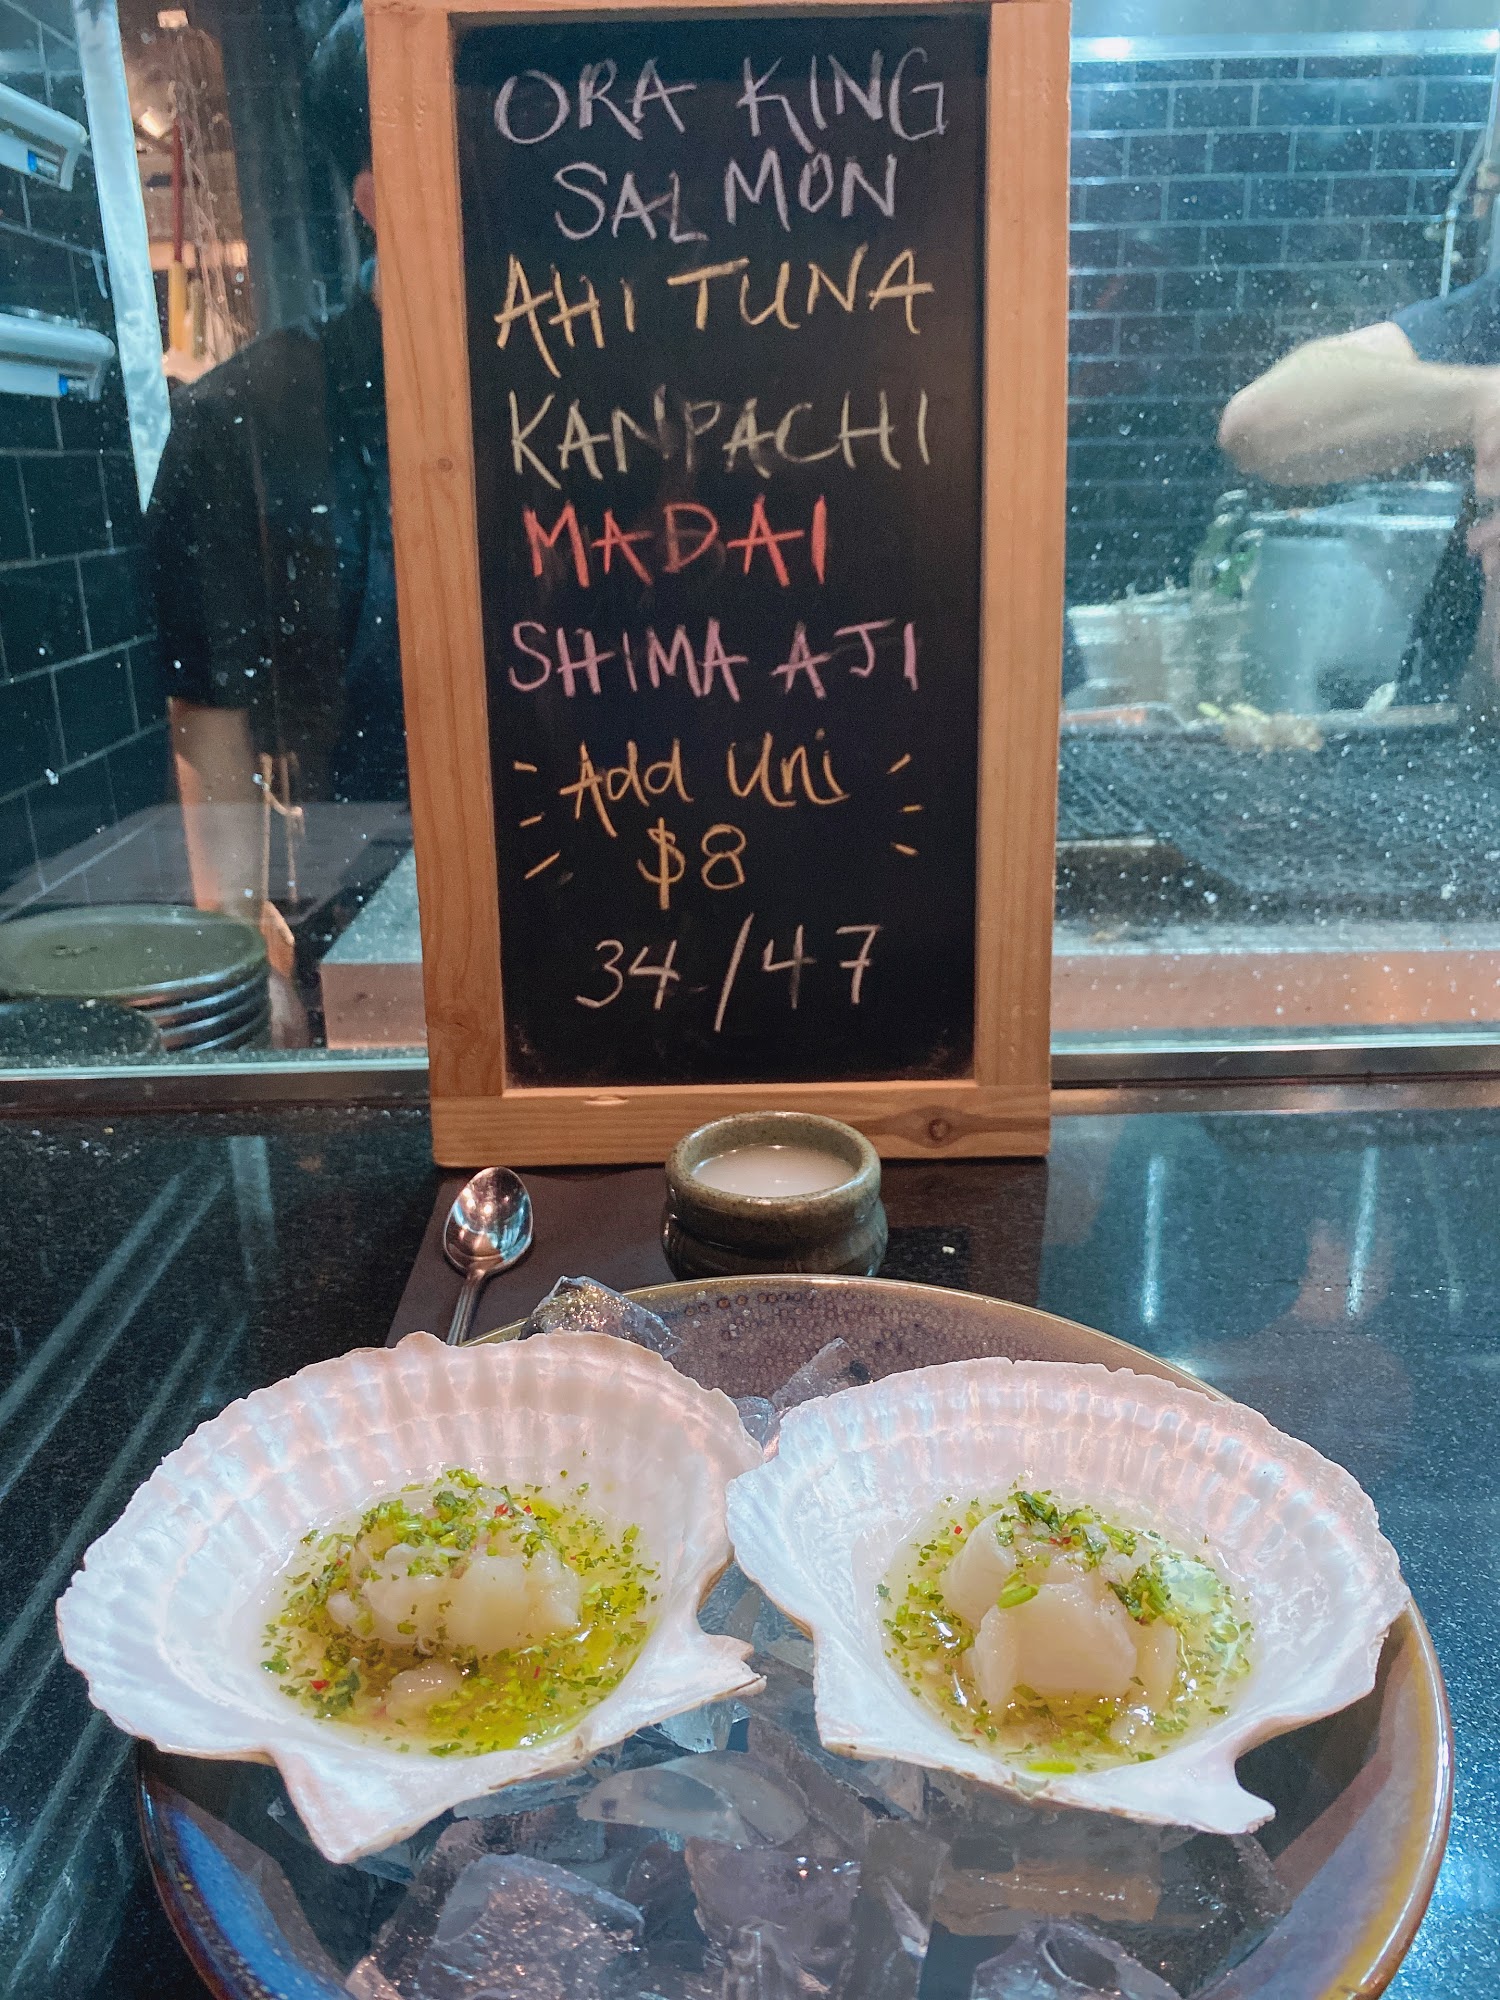 ORA KING
SALMON
AHI TUNA
KANPACHI
MADAI
SHIMA AJI
Add Uni
$8
34/47